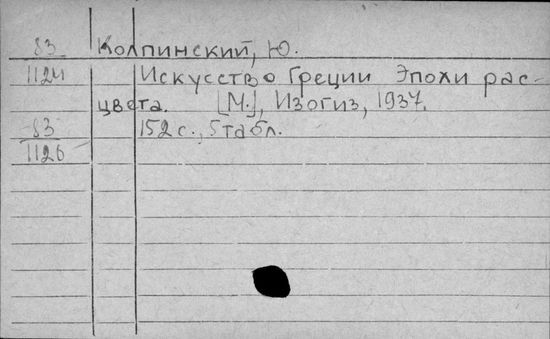 83 Колпинский, Ю.
1124 Искусство Греции Эпохи рас-
цвета. [М.], Изогиз, 1937.
83 152 с., 5 табл.
1126